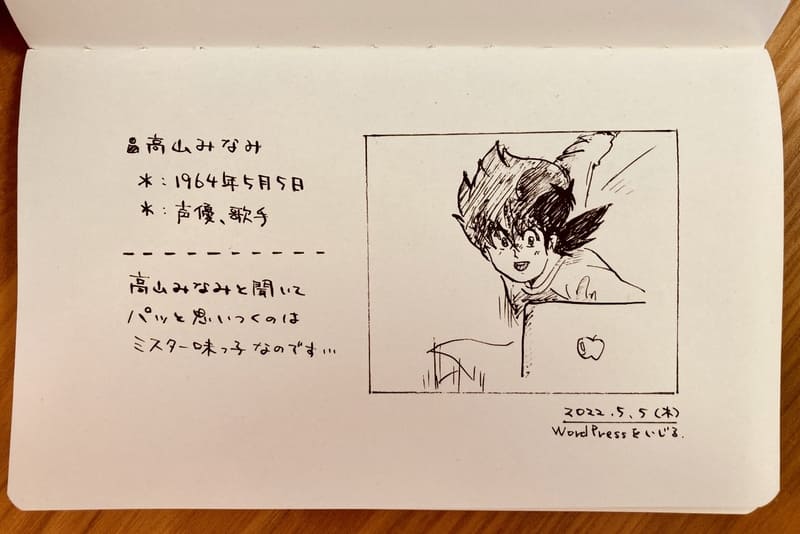 高山みなみ
*：1964年5月5日
*：声優、歌手
高山みなみと聞いて
パッと思いつくのは
ミスター味っ子なのです…
2022.5.5(木)
WordPressをいじる.